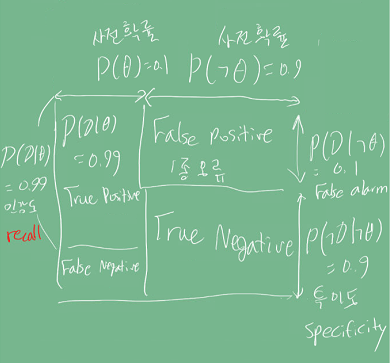 사전확률 사전확률
P(θ)=0.1 P(¬θ)=0.9
P(D|θ)
= 0.99
민감도
recall
P(D|θ)
= 0.99
True Positive
False Negative
False positive
1종 오류
True Negative
P(D|¬θ)
= 0.1
False alarm
P(¬D|¬θ)
= 0.9
특이도
Specificity